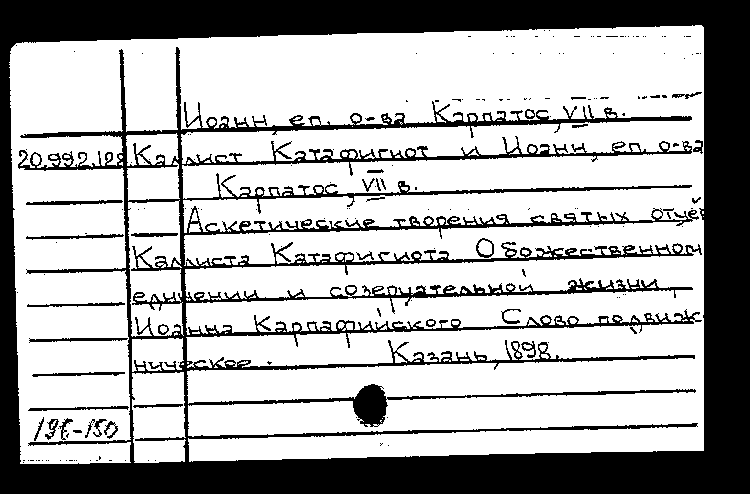 Иоанн, еп. о-ва Карпатос, VII в.
20.992.128 Каллист Катафигиот и Иоанн, еп. о-ва
Карпатос, VII в.
Аскетические творения святых отцёв
Каллиста Катафигиота О божественном
единении и созерцательной жизни,
Иоанна Карпафийского Слово подвиж-
ническое. Казань, 1898.
196-150